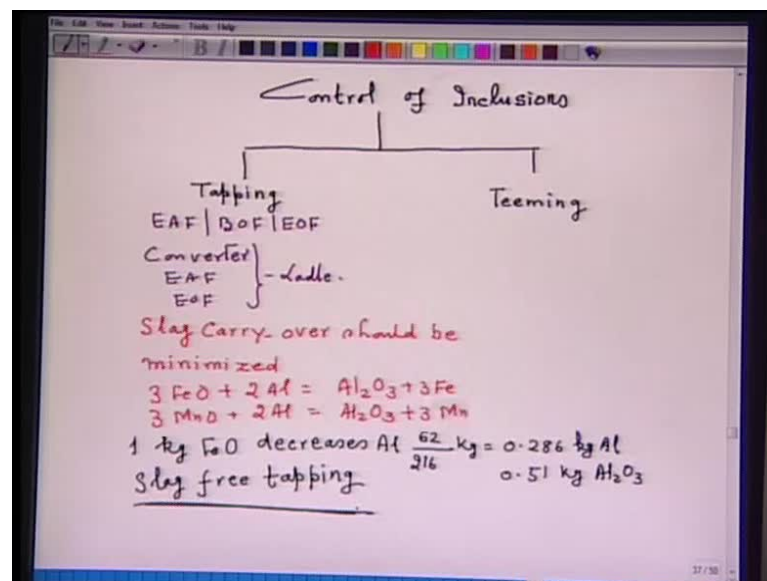 File Edit View Insert Actions Tools Help
B I
Control of Inclusions
Tapping
Teeming
EAF | BOF | EOF
Converter
EAF
EOF
- Ladle.
Slag Carry-over should be
minimized
3 FeO + 2 Al = Al2O3 + 3 Fe
3 MnO + 2 Al = Al2O3 + 3 Mn
1 kg FeO decreases Al 62/216 kg = 0.286 kg Al
0.51 kg Al2O3
Slag free tapping
37/50